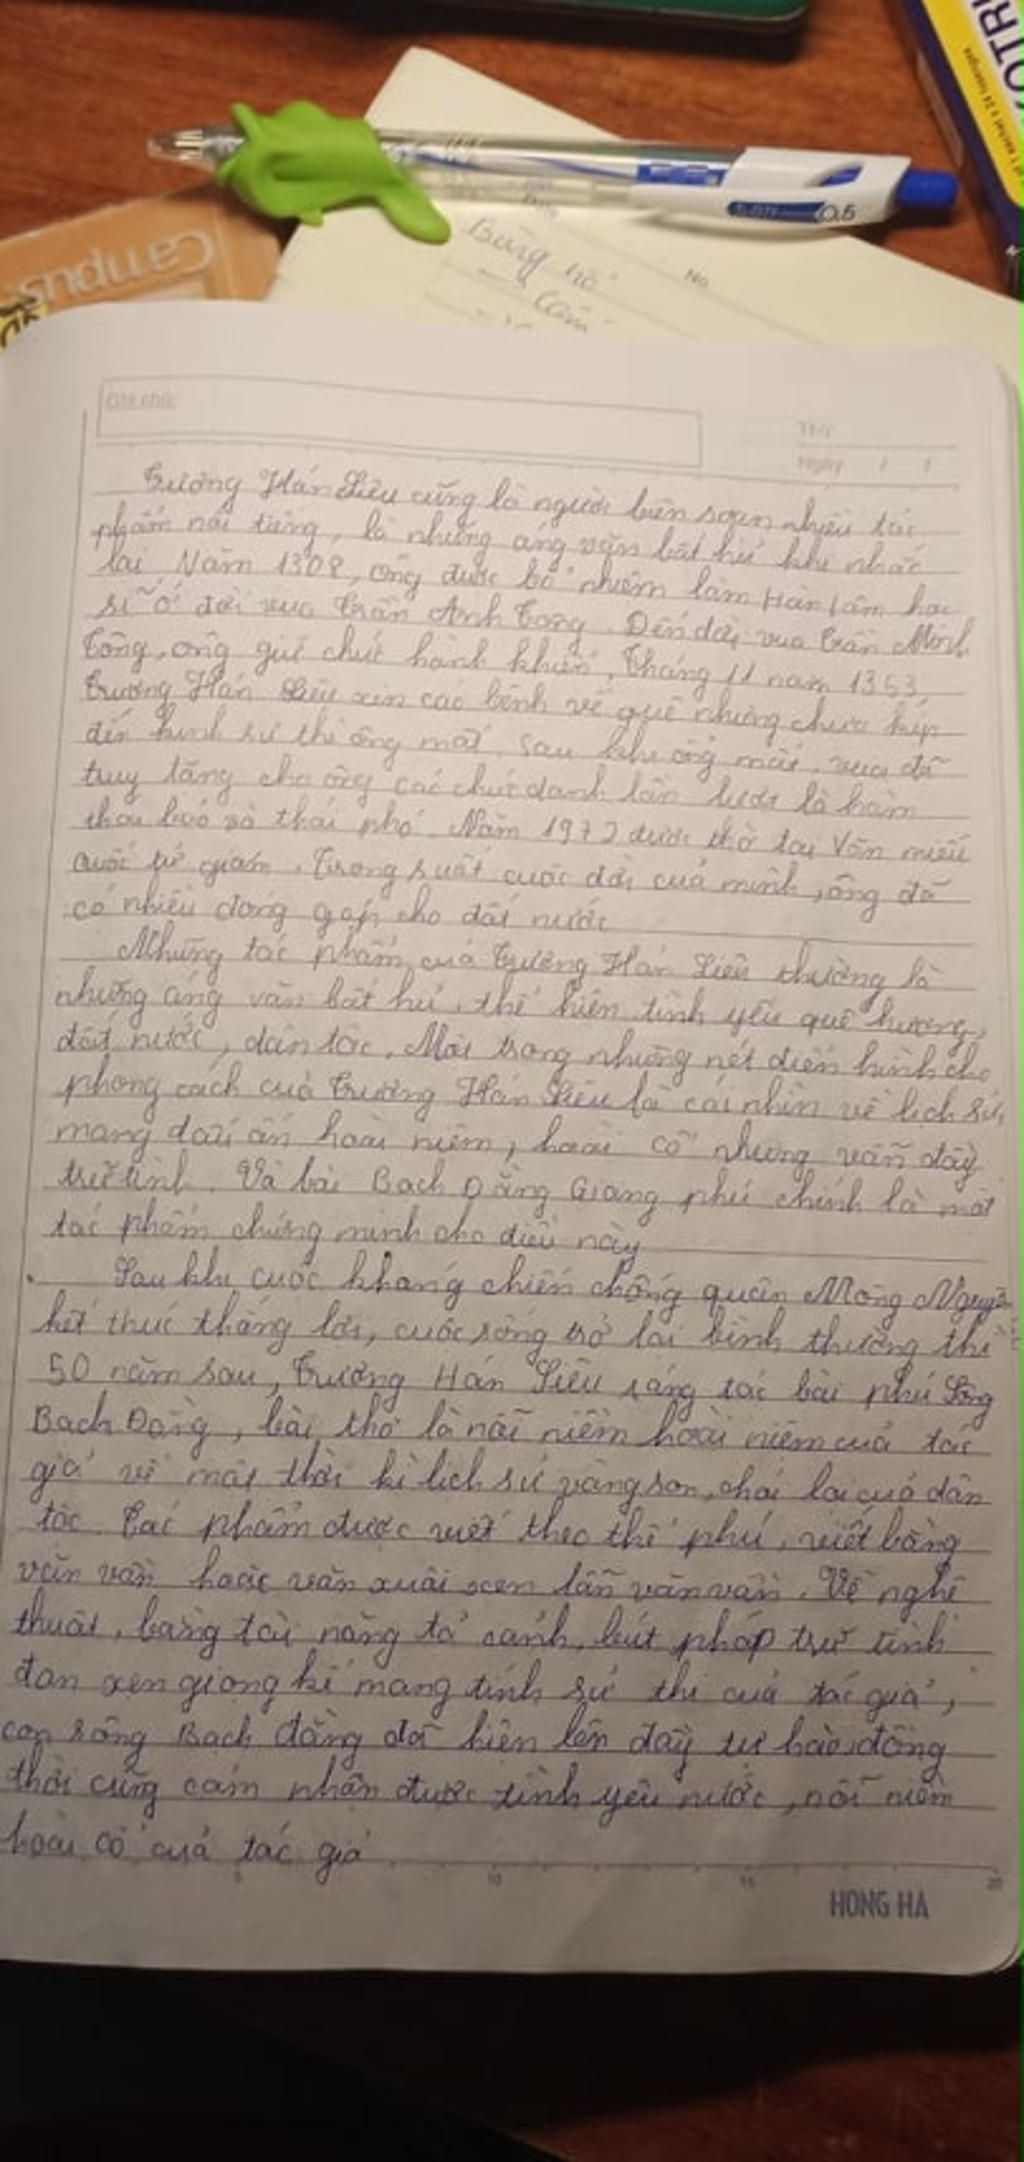 OTRI
1 sachet x 24
Campus
0.5
No
Bảng hỏ
cảm
Ghi chú:
Thứ
Ngày / /
Trương Hán Siêu cũng là người biên soạn nhiều tác
phẩm nổi tiếng, là những áng văn bất hủ khi nhắc
lại Năm 1308, ông được bổ nhiệm làm Hàn lâm học
sĩ ở đời vua Trần Anh Tông. Đến đời vua Trần Minh
Tông, ông giữ chức hành khiển, Tháng 11 năm 1353,
Trương Hán Siêu xin cáo bệnh về quê nhưng chưa kịp
đến kinh sư thì ông mất. Sau khi ông mất, vua đã
truy tặng cho ông các chức danh lần lượt là hàm
thái bảo và thái phó. Năm 1372 được thờ tại Văn miếu
quốc tử giám. Trong suốt cuộc đời của mình, ông đã
có nhiều đóng góp cho đất nước
Những tác phẩm của Trương Hán Siêu thường là
những áng văn bất hủ, thể hiện tình yêu quê hương,
đất nước, dân tộc. Một trong những nét điển hình cho
phong cách của Trương Hán Siêu là cái nhìn về lịch sử,
mang dấu ấn hoài niệm, hoài cổ nhưng vẫn đầy
trữ tình. Và bài Bạch Đằng Giang phú chính là một
tác phẩm chứng minh cho điều này
Sau khi cuộc kháng chiến chống quân Mông Nguyên
kết thúc thắng lợi, cuộc sống trở lại bình thường thì
50 năm sau, Trương Hán Siêu sáng tác bài phú Sông
Bạch Đằng, bài thơ là nỗi niềm hoài niệm của tác
giả về một thời kì lịch sử vàng son, chói lọi của dân
tộc. Tác phẩm được viết theo thể phú, viết bằng
văn vần hoặc văn xuôi xen lẫn văn vần. Về nghệ
thuật, bằng tài năng tả cảnh, bút pháp trữ tình
đan xen giọng kể mang tính sử thi của tác giả,
con sông Bạch đằng đã hiện lên đầy tự hào, đồng
thời cũng cảm nhận được tình yêu nước, nỗi niềm
hoài cổ của tác giả
5 10 15 20
HONG HA